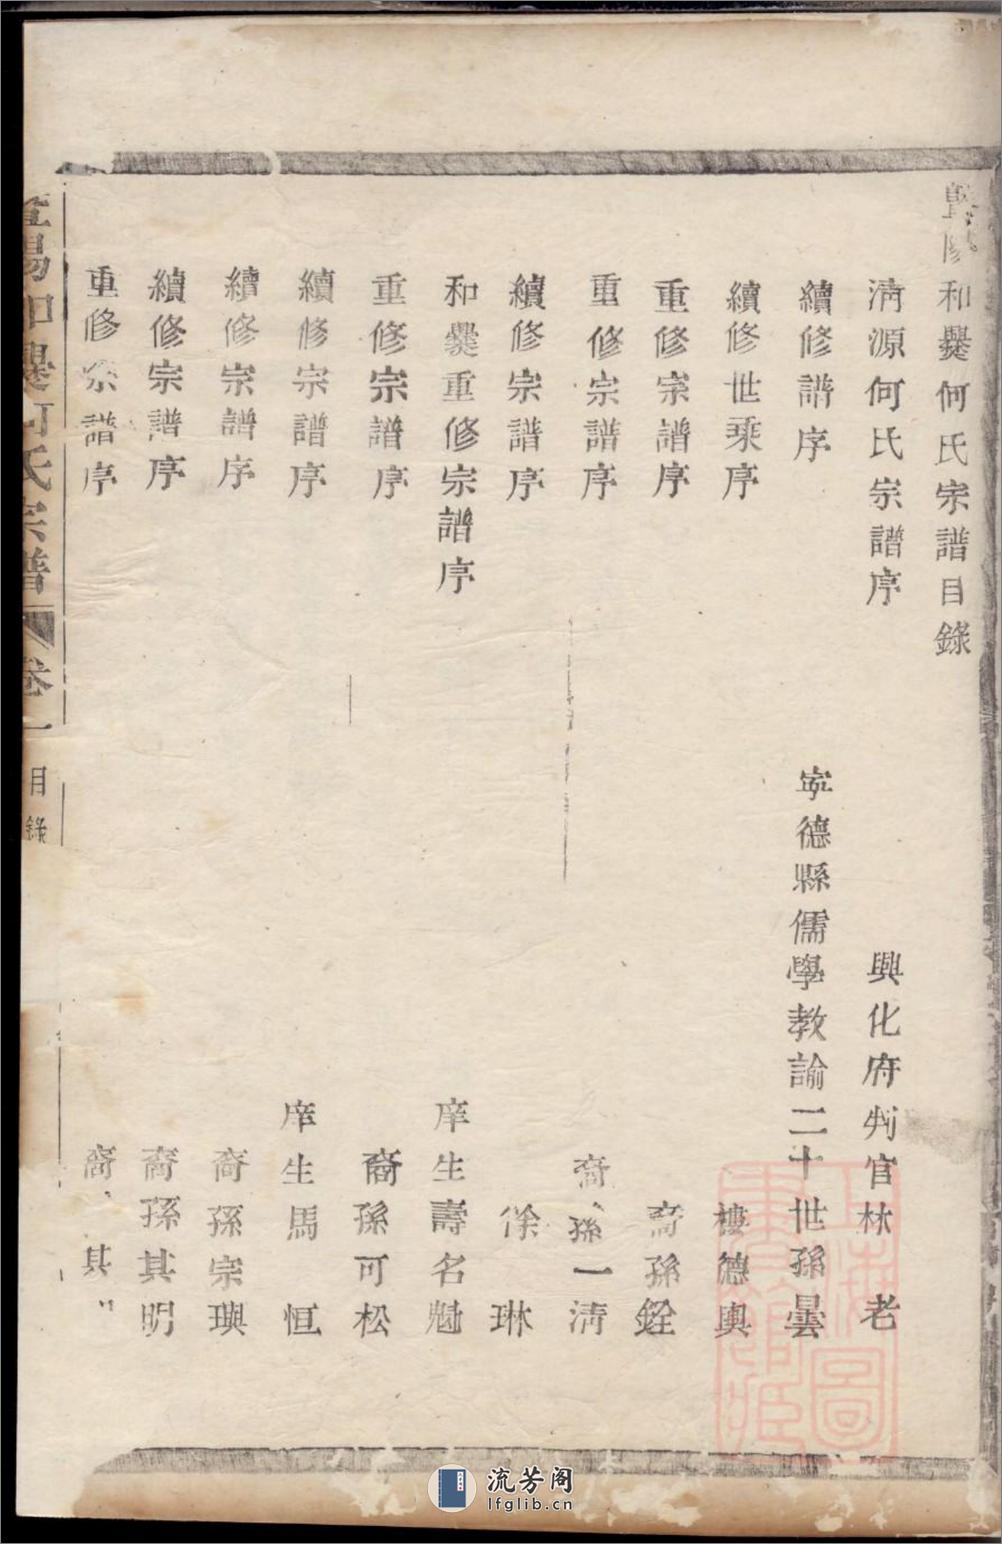 和㸑何氏宗譜目錄
淸源何氏宗譜序 興化府判官林 老
續修譜序 寕德縣儒學教諭二十世孫曇
續修世乘序 樓德輿
重修宗譜序 裔孫銓
重修宗譜序 裔孫一淸
續修宗譜序 徐 琳
和㸑重修宗譜序 庠生壽名魁
重修宗譜序 裔孫可松
續修宗譜序 庠生馬 恒
續修宗譜序 裔孫宗璵
續修宗譜序 裔孫其明
重修宗譜序 裔 其
何氏宗譜
卷一
目錄
上海圖書館藏
流芳阁
lfglib.cn